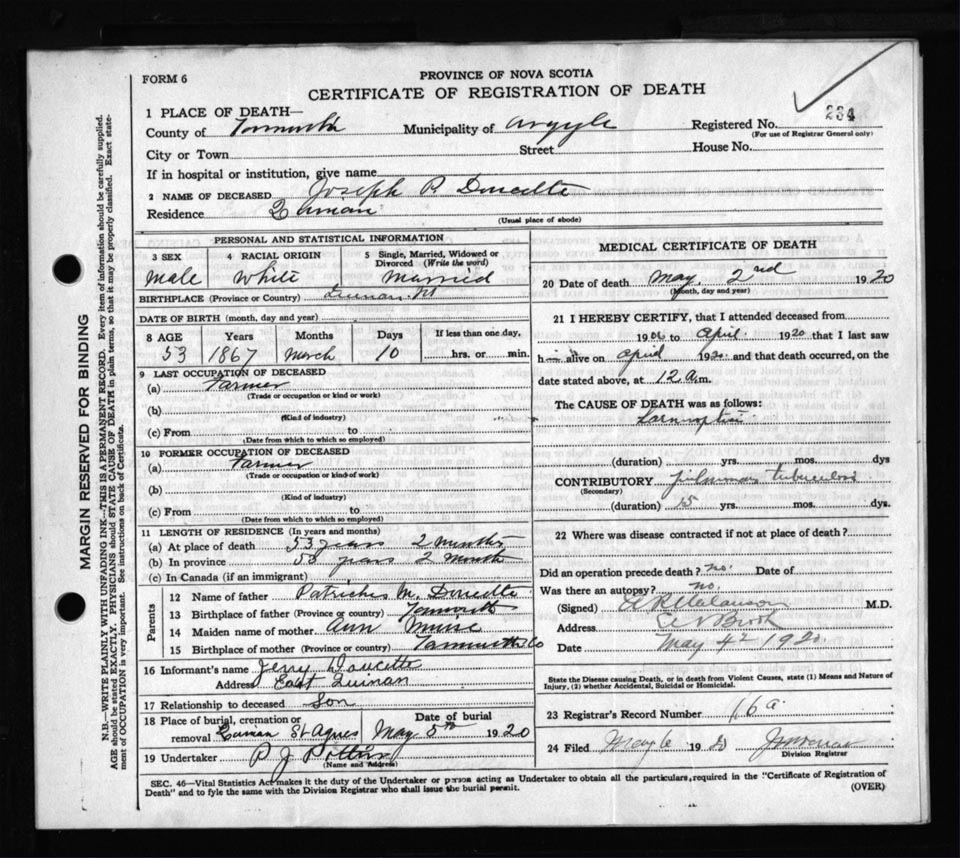 FORM 6
PROVINCE OF NOVA SCOTIA
CERTIFICATE OF REGISTRATION OF DEATH
1 PLACE OF DEATH—
County of Yarmouth Municipality of Argyle Registered No. 234
(For use of Registrar General only)
City or Town Street House No.
If in hospital or institution, give name
2 NAME OF DECEASED Joseph R Doucette
Residence Quinan
(Usual place of abode)
PERSONAL AND STATISTICAL INFORMATION
3 SEX 4 RACIAL ORIGIN 5 Single, Married, Widowed or Divorced (Write the word)
male White Married
BIRTHPLACE (Province or Country) Quinan NS
DATE OF BIRTH (month, day and year)
8 AGE Years Months Days If less than one day,
53 1867 March 10 hrs. or min.
9 LAST OCCUPATION OF DECEASED
(a) Farmer
(Trade or occupation or kind or work)
(b)
(Kind of industry)
(c) From to
(Date from which to which so employed)
10 FORMER OCCUPATION OF DECEASED
(a) Farmer
(Trade or occupation or kind of work)
(b)
(Kind of industry)
(c) From to
(Date from which to which so employed)
11 LENGTH OF RESIDENCE (In years and months)
(a) At place of death 53 years 2 months
(b) In province 53 years 2 month
(c) In Canada (if an immigrant)
Parents
12 Name of father M. Doucette
13 Birthplace of father (Province or country) Yarmouth
14 Maiden name of mother Ann Muise
15 Birthplace of mother (Province or country) Yarmouth Co
16 Informant's name Jerry Doucette
Address East Quinan
17 Relationship to deceased Son
18 Place of burial, cremation or removal Quinan St Agnes
Date of burial May 5th 1920
19 Undertaker P J Pothier
(Name and Address)
MEDICAL CERTIFICATE OF DEATH
20 Date of death May 2nd 1920
(Month, day and year)
21 I HEREBY CERTIFY, that I attended deceased from
19 to April 1920 that I last saw
him alive on April 1920 and that death occurred, on the
date stated above, at 12 a.m.
The CAUSE OF DEATH was as follows:
(duration) yrs. mos. dys
CONTRIBUTORY pulmonary tuberculosis
(Secondary)
(duration) 15 yrs. mos. dys.
22 Where was disease contracted if not at place of death?
Did an operation precede death? no. Date of
Was there an autopsy? no.
(Signed) M.D.
Address
Date May 4 1920
State the Disease causing Death, or in death from Violent Causes, state (1) Means and Nature of Injury, (2) whether Accidental, Suicidal or Homicidal.
23 Registrar's Record Number 16a
24 Filed May 6 19
Division Registrar
SEC. 46—Vital Statistics Act makes it the duty of the Undertaker or person acting as Undertaker to obtain all the particulars, required in the "Certificate of Registration of
Death" and to fyle the same with the Division Registrar who shall issue the burial permit.
(OVER)
MARGIN RESERVED FOR BINDING
N.B.—WRITE PLAINLY WITH UNFADING INK—THIS IS A PERMANENT RECORD. Every item of information should be carefully supplied.
AGE should be stated EXACTLY. PHYSICIANS should STATE CAUSE OF DEATH in plain terms, so that it may be properly classified. Exact state-
ment of OCCUPATION is very important. See instructions on back of Certificate.